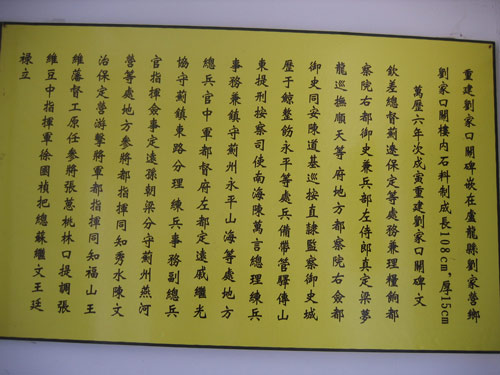 重建劉家口關碑嵌在盧龍縣劉家營鄉
劉家口關樓內石料制成長108cm,厚15cm
萬歷六年次戊寅重建劉家口關碑文
欽差總督薊遼保定等處務兼理糧餉都
察院右都御史兼兵部左侍郎真定梁夢
龍巡撫順天等府地方都察院右僉都
御史同安陳道基巡按直隸監察御史城
歷于鯨整飭永平等處兵備帶管驛傳山
東提刑按察司使南海陳萬言總理練兵
事務兼鎮守薊州永平山海等處地方
總兵官中軍都督府左都定遠戚繼光
協守薊鎮東路分理練兵事務副總兵
官指揮僉事定遠孫朝梁分守薊州燕河
營等處地方參將都指揮同知秀水陳文
治保定營游擊將軍都指揮同知福山王
維藩督工原任參將張蒽桃林口提調張
維豆中指揮軍徐國楨把總蘇繼文王廷
祿立